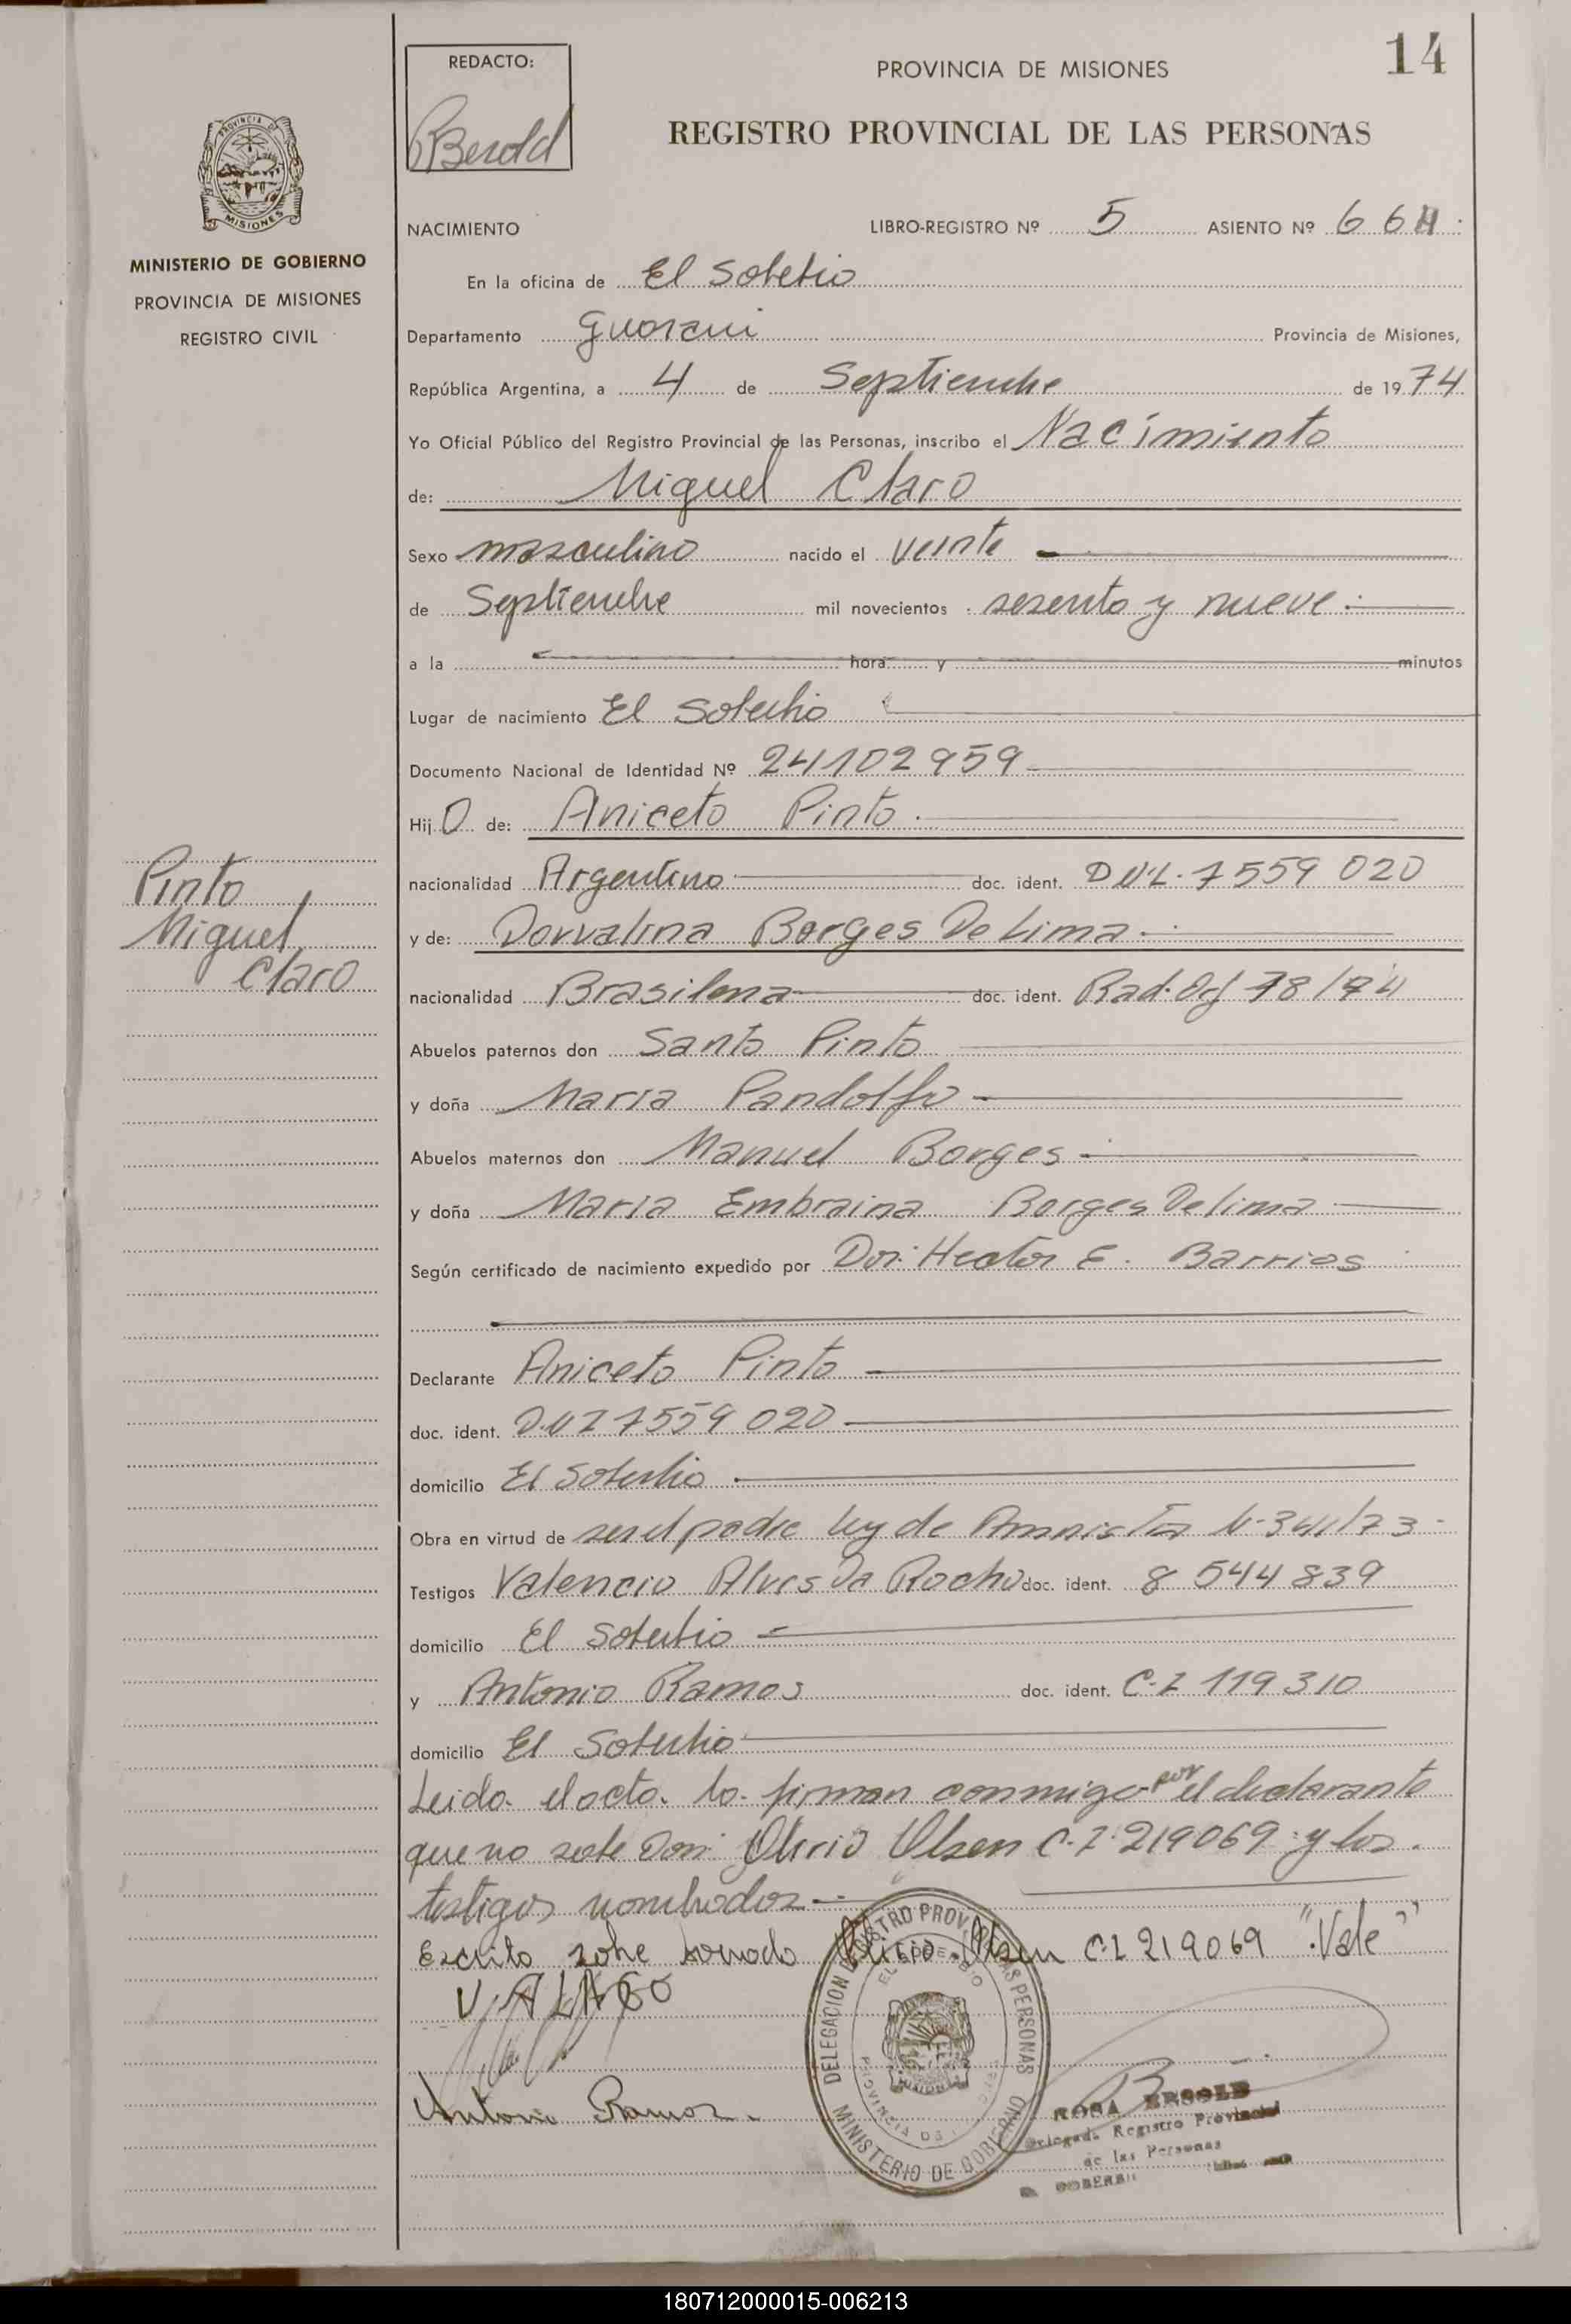 14
REDACTO:
PROVINCIA DE MISIONES
REGISTRO PROVINCIAL DE LAS PERSONAS
PROVINCIA DE
MISIONES
MINISTERIO DE GOBIERNO
PROVINCIA DE MISIONES
REGISTRO CIVIL
NACIMIENTO LIBRO-REGISTRO Nº 5 ASIENTO Nº
En la oficina de El Soberbio
Departamento Guarani Provincia de Misiones,
República Argentina, a 4 de Septiembre de 1974
Yo Oficial Público del Registro Provincial de las Personas, inscribo el Nacimiento
de: Miguel Claro
Sexo masculino nacido el veinte
de Septiembre mil novecientos sesenta y nueve
a la hora y minutos
Lugar de nacimiento El Soberbio
Documento Nacional de Identidad Nº 24102959
Hijo de: Aniceto Pinto
Pinto
Miguel
Claro
nacionalidad Argentino doc. ident. D.N.I. 7559 020
y de: Dorvalina Borges De Lima
nacionalidad Brasilena doc. ident. Rad. 78/74
Abuelos paternos don Santo Pinto
y doña Maria Pandolfo
Abuelos maternos don Manuel Borges
y doña Maria Embraina Borges Delima
Según certificado de nacimiento expedido por Dor. Hector E. Barrios
Declarante Aniceto Pinto
doc. ident. D.N.I 7559 020
domicilio El Soberbio
Obra en virtud de ser el padre ley de Amnistia
Testigos Valencio Alves Da Rocha doc. ident. 8 544 839
domicilio El Soberbio
y Antonio Ramos doc. ident. C.I 119310
domicilio El Soberbio
Leida el acta la firman conmigo por el declarante
que no sabe Don Olirio Olsen C.I. 219069 y los
testigos nombrados
Escrito sobre borrado Olirio Olsen C.I 219069 "Vale"
Antonio Ramos.
DELEGACION REGISTRO PROV. LAS PERSONAS
EL SOBERBIO
PROVINCIA DE
MINISTERIO DE GOBIERNO
ROSA
Delegada Registro Provincial
de las Personas
180712000015-006213